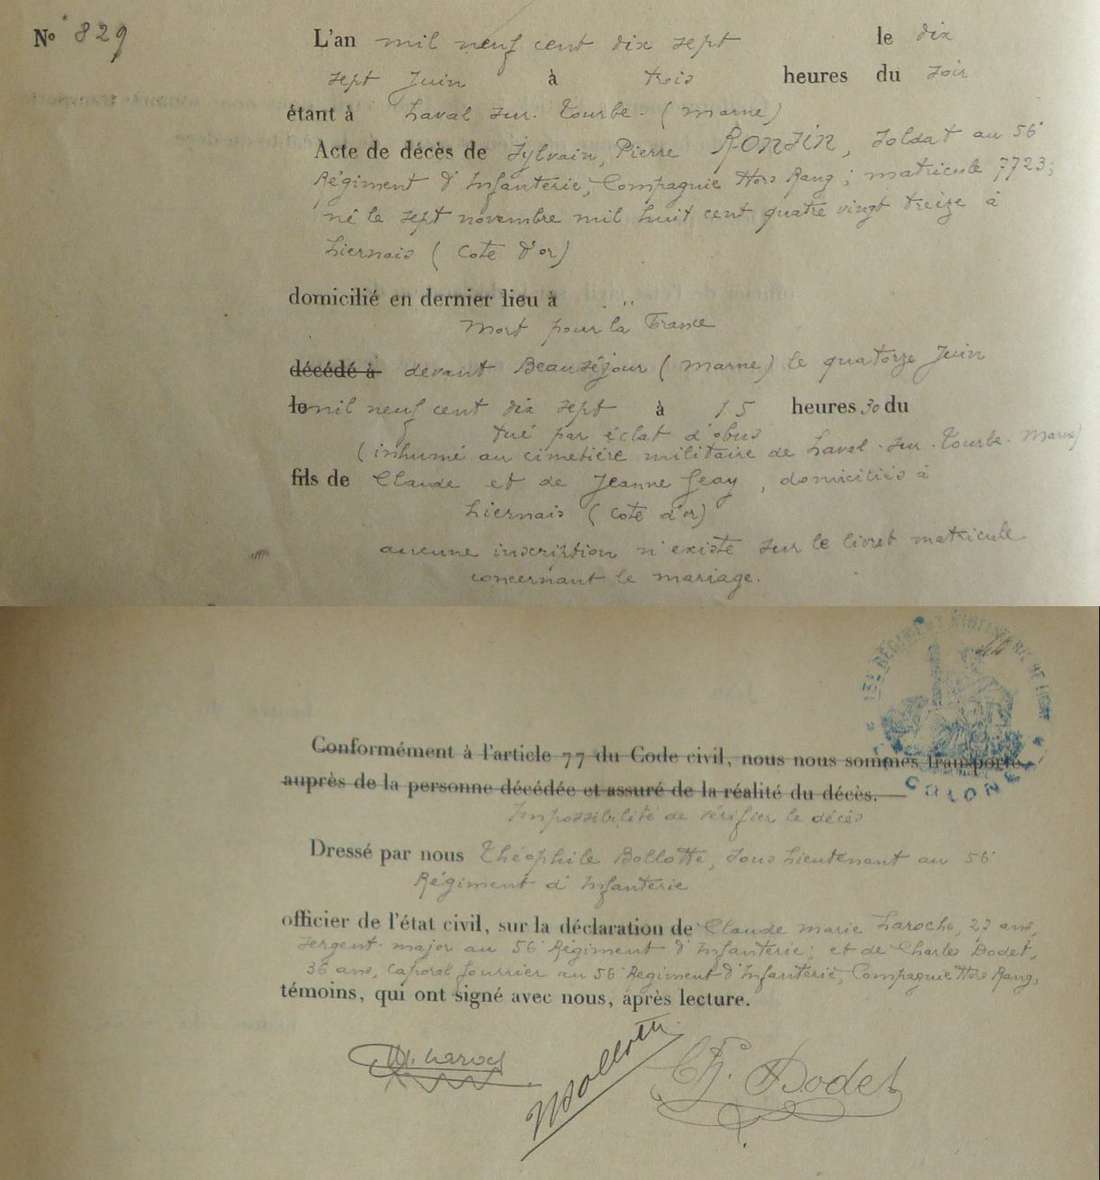 N° 829
L'an mil neuf cent dix sept le dix
sept Juin à trois heures du soir
étant à Laval sur-Tourbe-(marne)
Acte de décès de Sylvain, Pierre RONSIN, Soldat au 56e
Régiment d'Infanterie, Compagnie Hors Rang; matricule 7723;
né le sept novembre mil huit cent quatre vingt treize à
Liernais (Cote d'or)
domicilié en dernier lieu à . ..
Mort pour la France
décédé à devant Beauséjour (Marne) le quatorze Juin
le mil neuf cent dix sept à 15 heures 30 du
tué par éclat d'obus
(inhumé au cimetière militaire de Laval-sur-Tourbe-Marne)
fils de Claude et de Jeanne Geay, domiciliés à
Liernais (cote d'or)
aucune inscription n'existe sur le livret matricule
concernant le mariage.
Conformément à l'article 77 du Code civil, nous nous sommes transporté
auprès de la personne décédée et assuré de la réalité du décès.—
Impossibilité de vérifier le décès
Dressé par nous Théophile Bollotte, sous Lieutenant au 56e
Régiment d'Infanterie
officier de l'état civil, sur la déclaration de Claude marie Laroche, 22 ans,
sergent-major au 56e Régiment d'Infanterie; et de Charles Dodet,
36 ans, Caporal fourrier au 56e Régiment d'Infanterie, Compagnie Hors Rang,
témoins, qui ont signé avec nous, après lecture.
Bollotte
Ch. Dodet